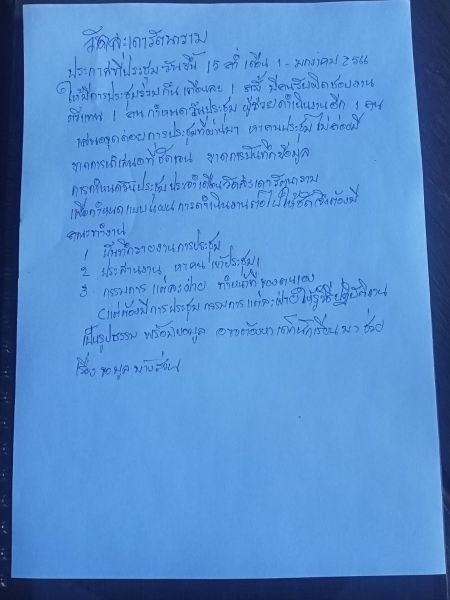 วัดสะเดารัตนาราม
ประกาศที่ประชุม วันขึ้น 15 ค่ำ เดือน 1 - มกราคม 256
ให้มีการประชุมร่วมกัน เดือนละ 1 ครั้ง มีคนรับผิดชอบงาน
1 คน กำหนดวันประชุม ผู้ช่วยดำเนินงานอีก 1 คน
การประชุมที่ผ่านมา หาคนประชุมไม่ค่อยมี
ขาดการนำเสนอที่ชัดเจน ขาดการบันทึกข้อมูล
การกำหนดวันประชุม ประจำเดือนวัดสะเดารัตนาราม
เพื่อกำหนดแบบแผน การดำเนินงานต่อไปให้ชัด จึงต้องมี
คณะทำงาน
1 บันทึกรายงานการประชุม
2 ประสานงาน หาคนเข้าประชุม
3 กรรมการ แต่ละฝ่าย ทำหน้าที่ของตนเอง
(แต่ต้องมีการประชุม กรรมการแต่ละฝ่าย ให้รู้วิธีปฏิบัติงาน
เป็นรูปธรรม พร้อมข้อมูล อาจต้องหาเด็กนักเรียนมาช่วย
เรื่องข้อมูลบางส่วน